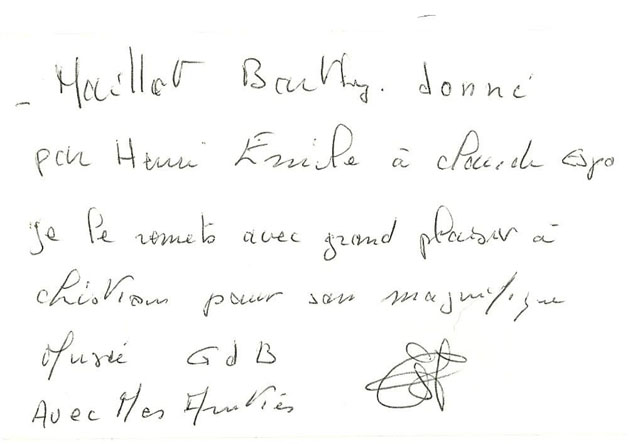 - Maillot Barthy. donné
par Henri Emile à claude Espo
je le remets avec grand plaisir à
christian pour son magnifique
Musée G d B
Avec Mes Amitiés